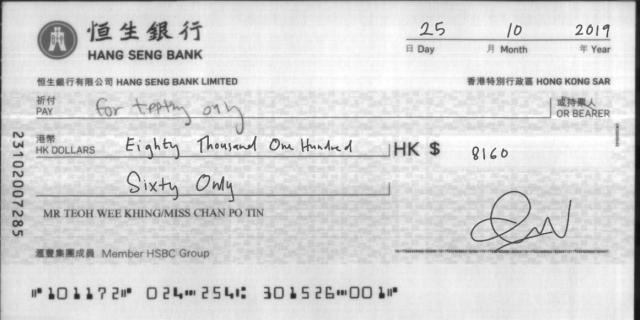 恒生銀行
HANG SENG BANK
25 10 2019
日 Day 月 Month 年 Year
恒生銀行有限公司 HANG SENG BANK LIMITED
香港特別行政區 HONG KONG SAR
祈付
PAY
for only
或持票人
OR BEARER
港幣
HK DOLLARS
Eighty Thousand One Hundred
HK $ 8160
Sixty Only
MR TEOH WEE KHING/MISS CHAN PO TIN
滙豐集團成員 Member HSBC Group
23102007285
⑈101172⑈ 024⑉254⑆ 301526⑉001⑈